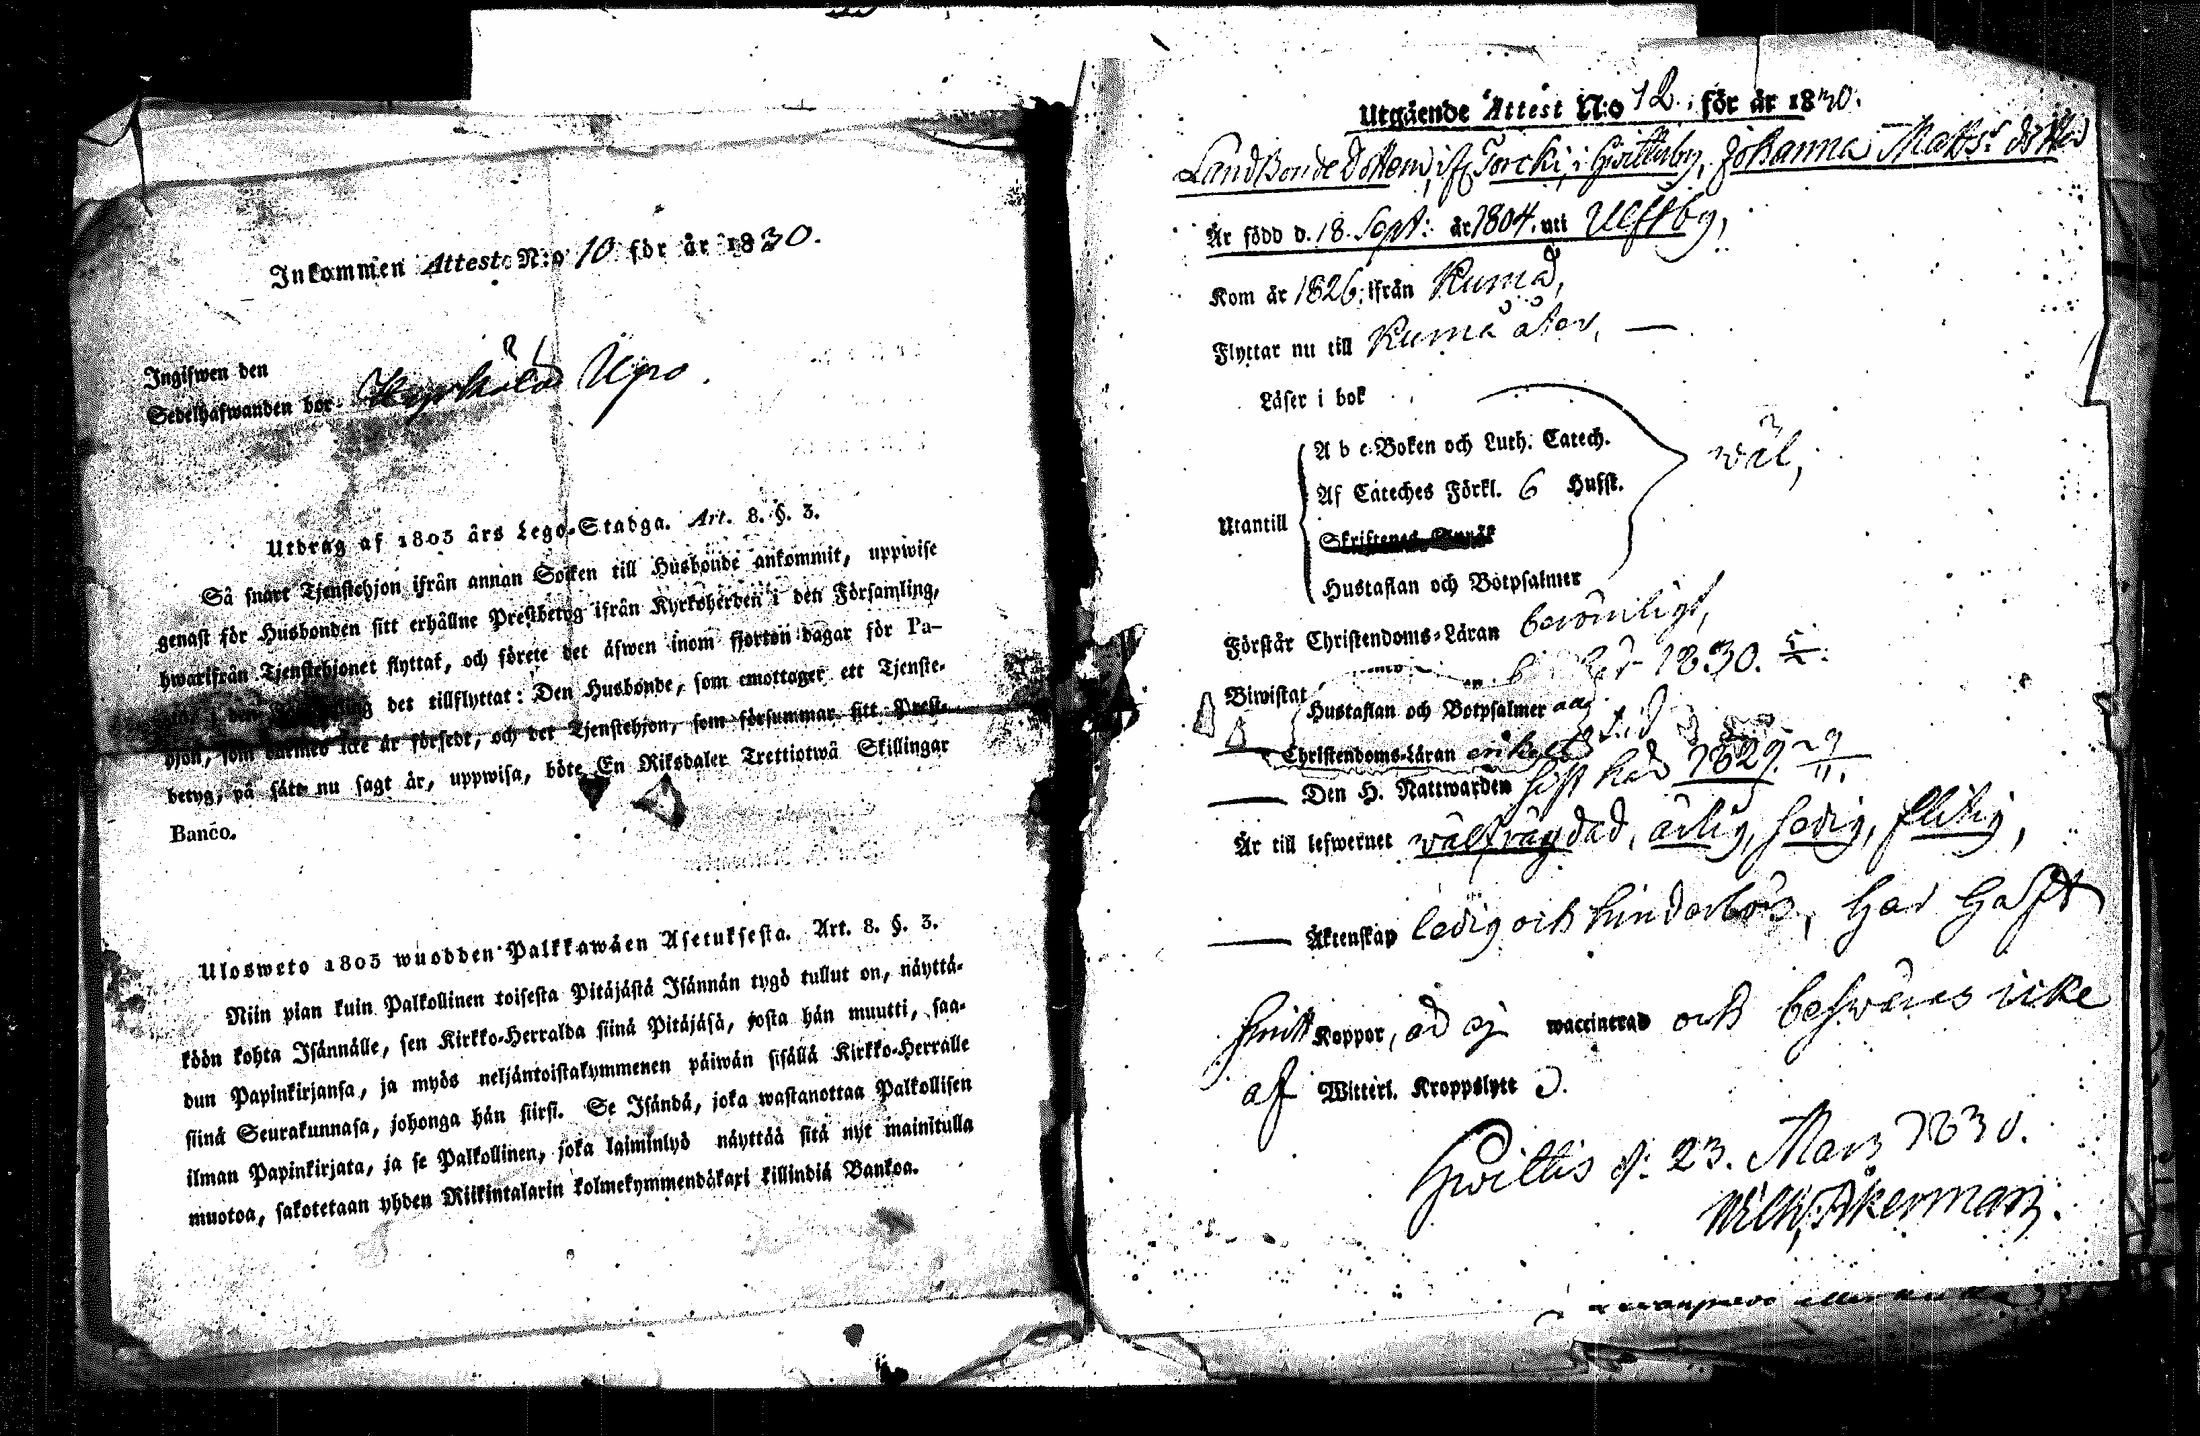 Inkommen Attest N:o 10 för år 1830.
Ingifwen den
Sedelhafwanden bor
Utdrag af 1805 års Lego-Stadga. Art. 8. §. 3.
Så snart Tjenstehjon ifrån annan Socken till Husbonde ankommit, uppwise
genast för Husbonden sitt erhållne Prestbetyg ifrån Kyrkoherden i den Församling,
hwarifrån Tjenstehjonet flyttat, och förete det äfwen inom fjorton dagar för Pa-
det tillflyttat: Den Husbonde, som emottager ett Tjenste-
hjon, som därmed icke är försedt, och det Tjenstehjon, som försummar sitt Prest-
betyg, på sätt nu sagt är, uppwisa, böte En Riksdaler Trettiotwå Skillingar
Banco.
Ulosweto 1805 wuodden Palkkawäen Asetuksesta. Art. 8. §. 3.
Niin pian kuin Palkollinen toisesta Pitäjästä Isännän tygö tullut on, näyttä-
köön kohta Isännälle, sen Kirkko-Herralda siinä Pitäjäsä, josta hän muutti, saa-
dun Papinkirjansa, ja myös neljäntoistakymmenen päiwän sisällä Kirkko-Herralle
siinä Seurakunnasa, johonga hän siirsi. Se Isändä, joka wastanottaa Palkollisen
ilman Papinkirjata, ja se Palkollinen, joka laiminlyö näyttää sitä nyt mainitulla
muotoa, sakotetaan yhden Riikintalarin kolmekymmendäkaxi killindiä Bankoa.
Utgående Attest N:o 12. för år 1830.
Landbonde Dottern, if Torcki, i Hwittisby, Johanna Matts: dotter
Är född d. 18. Sept: år 1804. uti Ulfsby,
Kom år 1826, ifrån Kumå,
Flyttar nu till Kumå åter, —
Läser i bok
A b c-Boken och Luth. Catech. wäl,
Af Cateches Förkl. 6 Hufst.
Utantill
Hustaflan och Botpsalmer
Förstår Christendoms-Läran berömligt,
Biwistat 1830.
Hustaflan och Botpsalmer
Christendoms-Läran
Den H. Nattwarden sist här 1829. 29/11.
Är till lefwernet wälfrägdad, ärlig, sedig, flitig,
Äktenskap ledig och hinderlös, har haft
Koppor, är ej waccinerad och beswäras icke
af Witterl. Kroppslyte
Hwittis d: 23. Mars 1830.
Wilh. Åkerman.